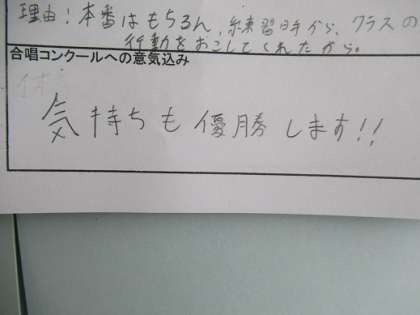 理由:本番はもちろん、練習時から、クラスの
行動をおこしてくれたから。
合唱コンクールへの意気込み
気持ちも優勝します!!